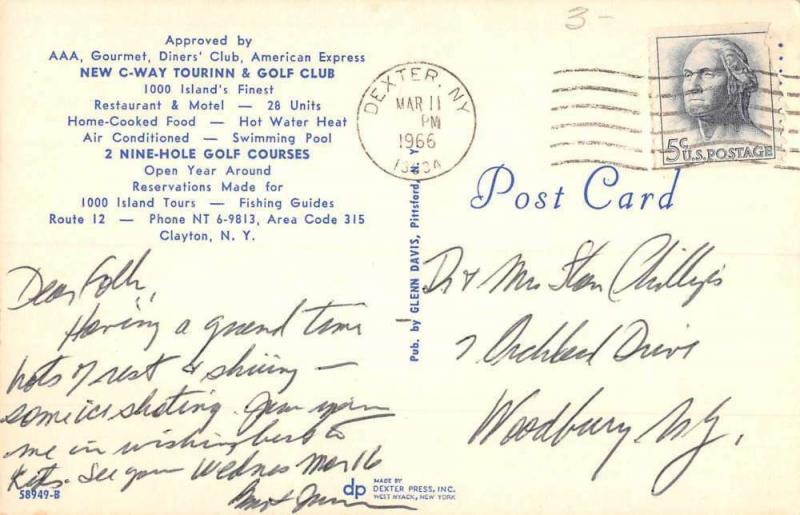 3-
Approved by
AAA, Gourmet, Diners' Club, American Express
NEW C-WAY TOURINN & GOLF CLUB
1000 Island's Finest
Restaurant & Motel — 28 Units
Home-Cooked Food — Hot Water Heat
Air Conditioned — Swimming Pool
2 NINE-HOLE GOLF COURSES
Open Year Around
Reservations Made for
1000 Island Tours — Fishing Guides
Route 12 — Phone NT 6-9813, Area Code 315
Clayton, N. Y.
DEXTER, NY
MAR 11
PM
1966
5¢ U.S. POSTAGE
Post Card
Pub. by GLENN DAVIS, Pittsford, N. Y.
Dear Folks,
Having a grand time
lots of rest & skiing —
some ice skating. Jean joins
me in wishing best to
Kets. See you Wednes Mar 16
Dr & Mrs Stan Phillips
7 Orchard Drive
Woodbury N.Y.
58949-B
dp
MADE BY
DEXTER PRESS, INC.
WEST NYACK, NEW YORK